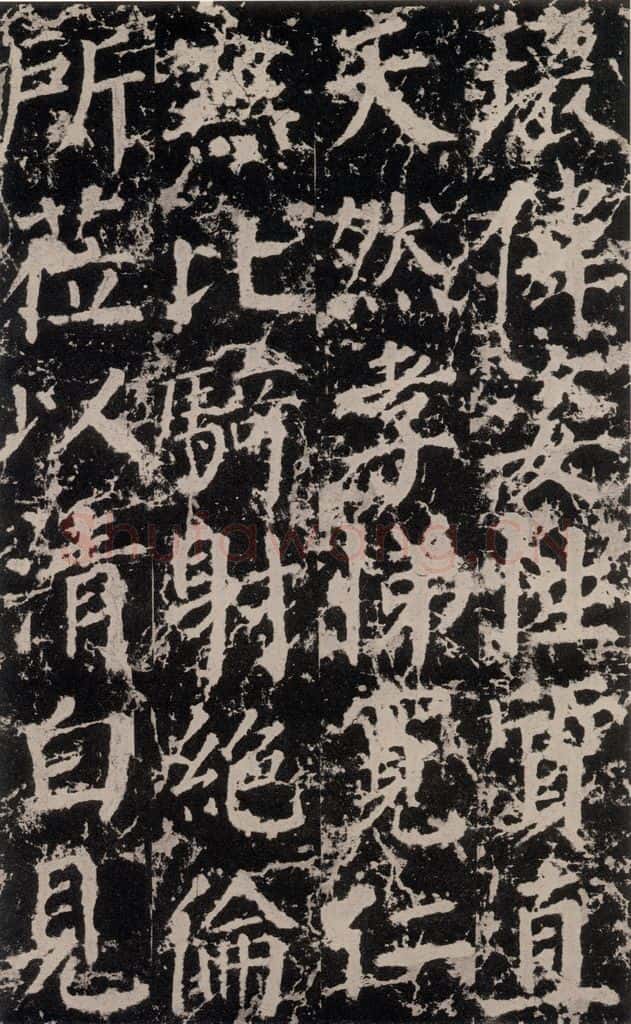 瓌偉姿性質直
天然孝悌寬仁
無比騎射絶倫
所莅以清白見
Shufawang.CN